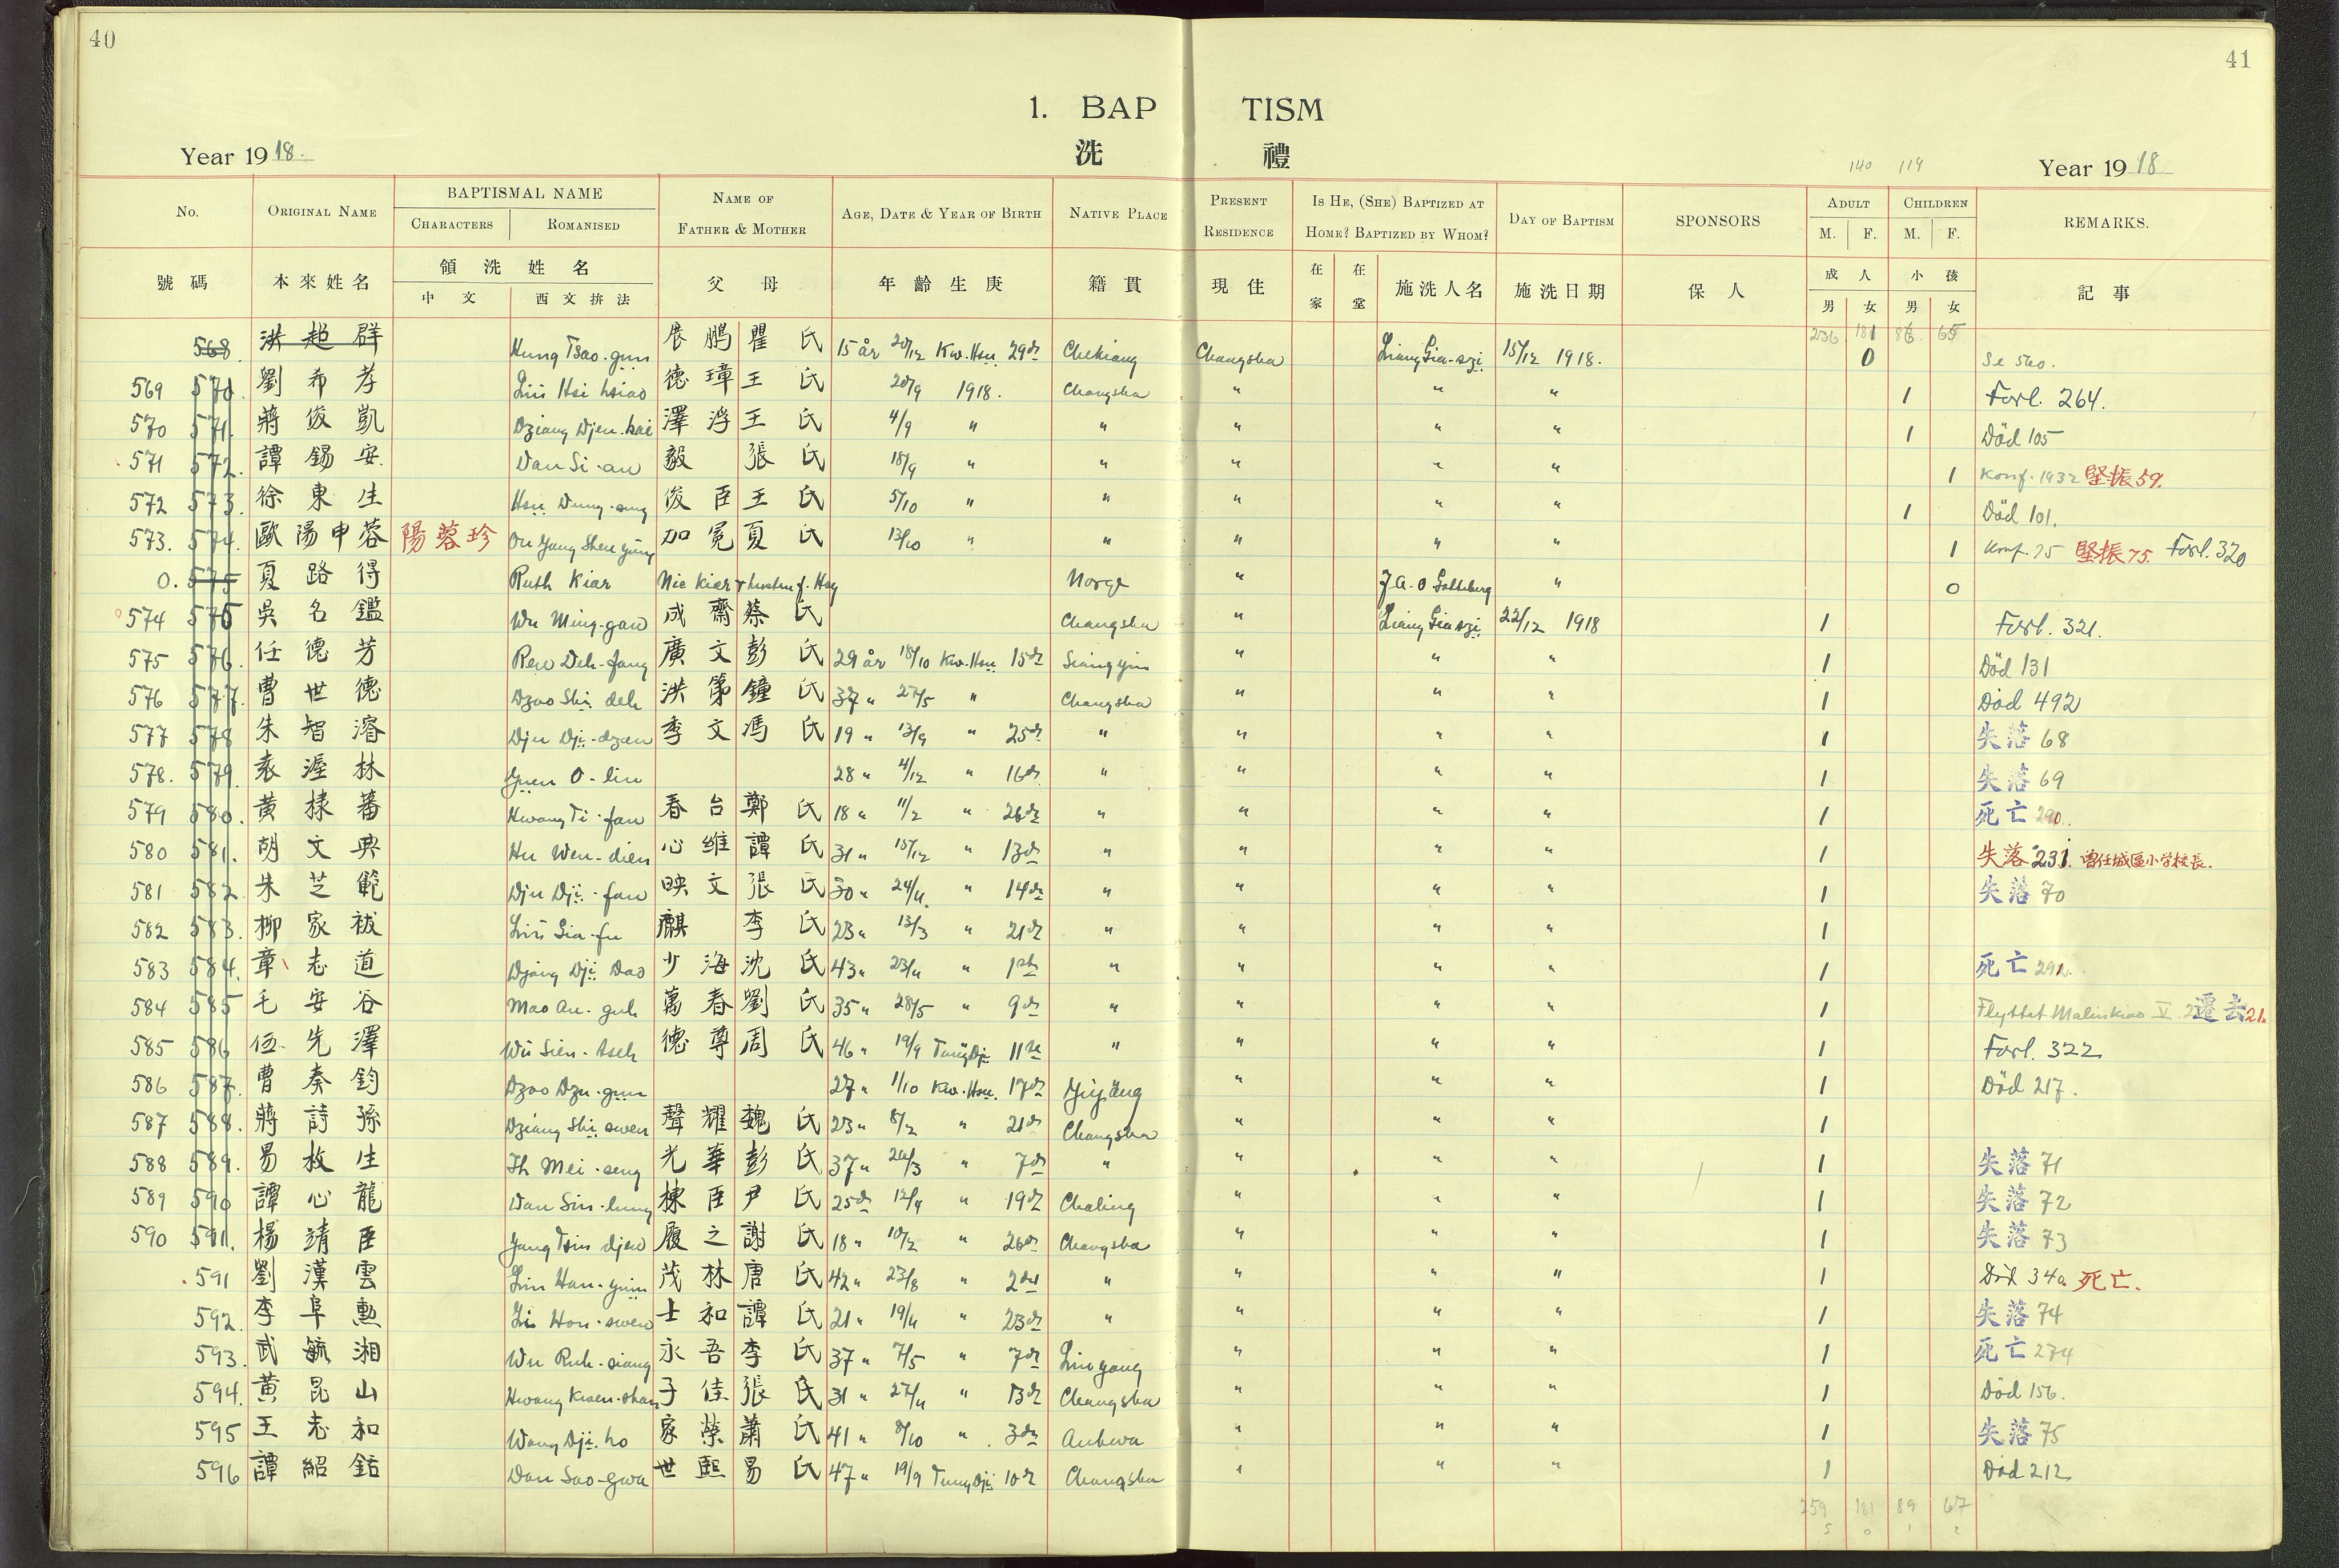 40
41
1. BAP TISM
洗 禮
Year 19 18.
140 119
Year 19 18
No. ORIGINAL NAME BAPTISMAL NAME NAME OF FATHER & MOTHER AGE, DATE & YEAR OF BIRTH NATIVE PLACE PRESENT RESIDENCE IS HE, (SHE) BAPTIZED AT HOME? BAPTIZED BY WHOM? DAY OF BAPTISM SPONSORS ADULT CHILDREN REMARKS.
CHARACTERS ROMANISED M. F. M. F.
號碼 本來姓名 領洗姓名 父母 年齡生庚 籍貫 現住 在家 在堂 施洗人名 施洗日期 保人 成人 小孩 記事
中文 西文拚法 男 女 男 女
236 181 86 65
568. 洪超群 Hung Tsao-gün 展鵬 瞿氏 15 år 20/12 Kw. Hsü 29de Chekiang Changsha Liang Gia-dzi 15/12 1918. 0 Se 560.
569 570. 劉希孝 Liu Hsi hsiao 德璋 王氏 20/9 1918. Changsha " " " 1 Forl. 264.
570 571. 蔣俊凱 Dziang Djen-kai 澤浮 王氏 4/9 " " " " " 1 Död 105
571 572. 譚錫安 Dan Si-an 毅 張氏 18/9 " " " " " 1 Konf. 1932 堅振59.
572 573. 徐東生 Hsü Dung-seng 俊臣 王氏 5/10 " " " " " 1 Död 101.
573. 574. 歐陽申蓉 陽蓉珍 Ou Yang Shen yüng 加冕 夏氏 13/10 " " " " " 1 Konf. 75 堅振75. Forl. 320
0. 575 夏路得 Ruth Kiær Norge " " 0
574 576 吳名鑑 Wu Ming-gan 成齋 蔡氏 Changsha " Liang Gia dzi 22/12 1918 1 Forl. 321.
575 576. 任德芳 Ren Deh-fang 廣文 彭氏 29 år 18/10 Kw. Hsü 15de Siangyin " " " 1 Död 131
576 577. 曹世德 Dzao Shi deh 洪第 鐘氏 37 " 27/5 " Changsha " " " 1 Död 492
577 578 朱智濬 Dju Dji-dzen 季文 馮氏 19 " 13/9 " 25de " " " " 1 失落 68
578. 579. 袁渥林 Yüen O-lin 28 " 4/12 " 16de " " " " 1 失落 69
579 580. 黃棣蕃 Hwang Ti-fan 春台 鄭氏 18 " 11/2 " 26de " " " " 1 死亡 290.
580 581. 胡文典 Hu Wen-dien 心维 譚氏 31 " 15/12 " 13de " " " " 1 失落 231. 曾任城區小学校長.
581 582 朱芝範 Dju Dji-fan 映文 張氏 30 " 24/11 " 14de " " " " 1 失落 70
582 583. 柳家祓 Liu Gia-fu 麒 李氏 23 " 13/3 " 21de " " " " 1
583 584. 章志道 Djang Dji Dao 少海 沈氏 43 " 23/11 " 1ste " " " " 1 死亡 291.
584 585 毛安谷 Mao An-guh 萬春 劉氏 35 " 28/5 " 9de " " " " 1 Flyttet Malinkiao V 遷去21.
585 586 伍先澤 Wu Sien-tseh 德尊 周氏 46 " 19/9 Tung Dji 11te " " " " 1 Forl. 322
586 587. 曹奏鈞 Dzao Dzu-gün 27 " 1/10 Kw. Hsü. 17de Yiyang " " " 1 Död 217.
587 588. 蔣詩孫 Dziang Shi swen 聲耀 魏氏 23 " 8/2 " 21de Changsha " " " 1
588 589. 易枚生 Ih Mei-seng 光華 彭氏 37 " 20/3 " 7de " " " " 1 失落 71
589 590 譚心龍 Dan Sin-lung 棟臣 尹氏 25de 12/4 " 19de Chaling " " " 1 失落 72
590 591. 楊靖臣 Yang Tsin djen 履之 謝氏 18 " 10/2 " 26de Changsha " " " 1 失落 73
591 劉漢雲 Liu Han-yün 茂林 唐氏 42 " 23/8 " 2det " " " " 1 Död 340 死亡.
592. 李阜勲 Li Hou-swen 士和 譚氏 21 " 19/11 " 23de " " " " 1 失落 74
593. 武毓湘 Wu Ruh-siang 永吾 李氏 37 " 7/5 " 7de Liuyang " " " 1 死亡 274
594. 黃昆山 Hwang Kwen-shan 子佳 張氏 31 " 27/11 " 13de Changsha " " " 1 Död 156.
595 王志和 Wang Dji-ho 家榮 蕭氏 41 " 8/10 " 3de Anhwa " " " 1 失落 75
596 譚紹銛 Dan Sao-gwa 世熙 易氏 47 " 19/9 Tung Dji 10de Changsha " " " 1 Död 212
259 181 89 67
5 0 1 2